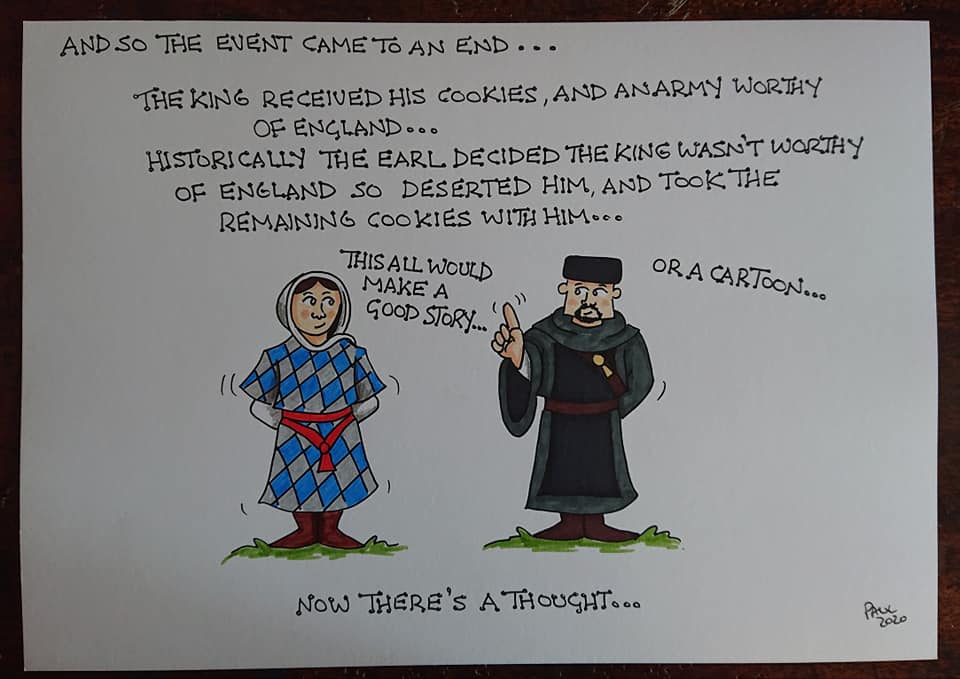 AND SO THE EVENT CAME TO AN END...
THE KING RECEIVED HIS COOKIES, AND AN ARMY WORTHY
OF ENGLAND...
HISTORICALLY THE EARL DECIDED THE KING WASN'T WORTHY
OF ENGLAND SO DESERTED HIM, AND TOOK THE
REMAINING COOKIES WITH HIM...
THIS ALL WOULD
MAKE A
GOOD STORY...
OR A CARTOON...
NOW THERE'S A THOUGHT...
PAUL
2020